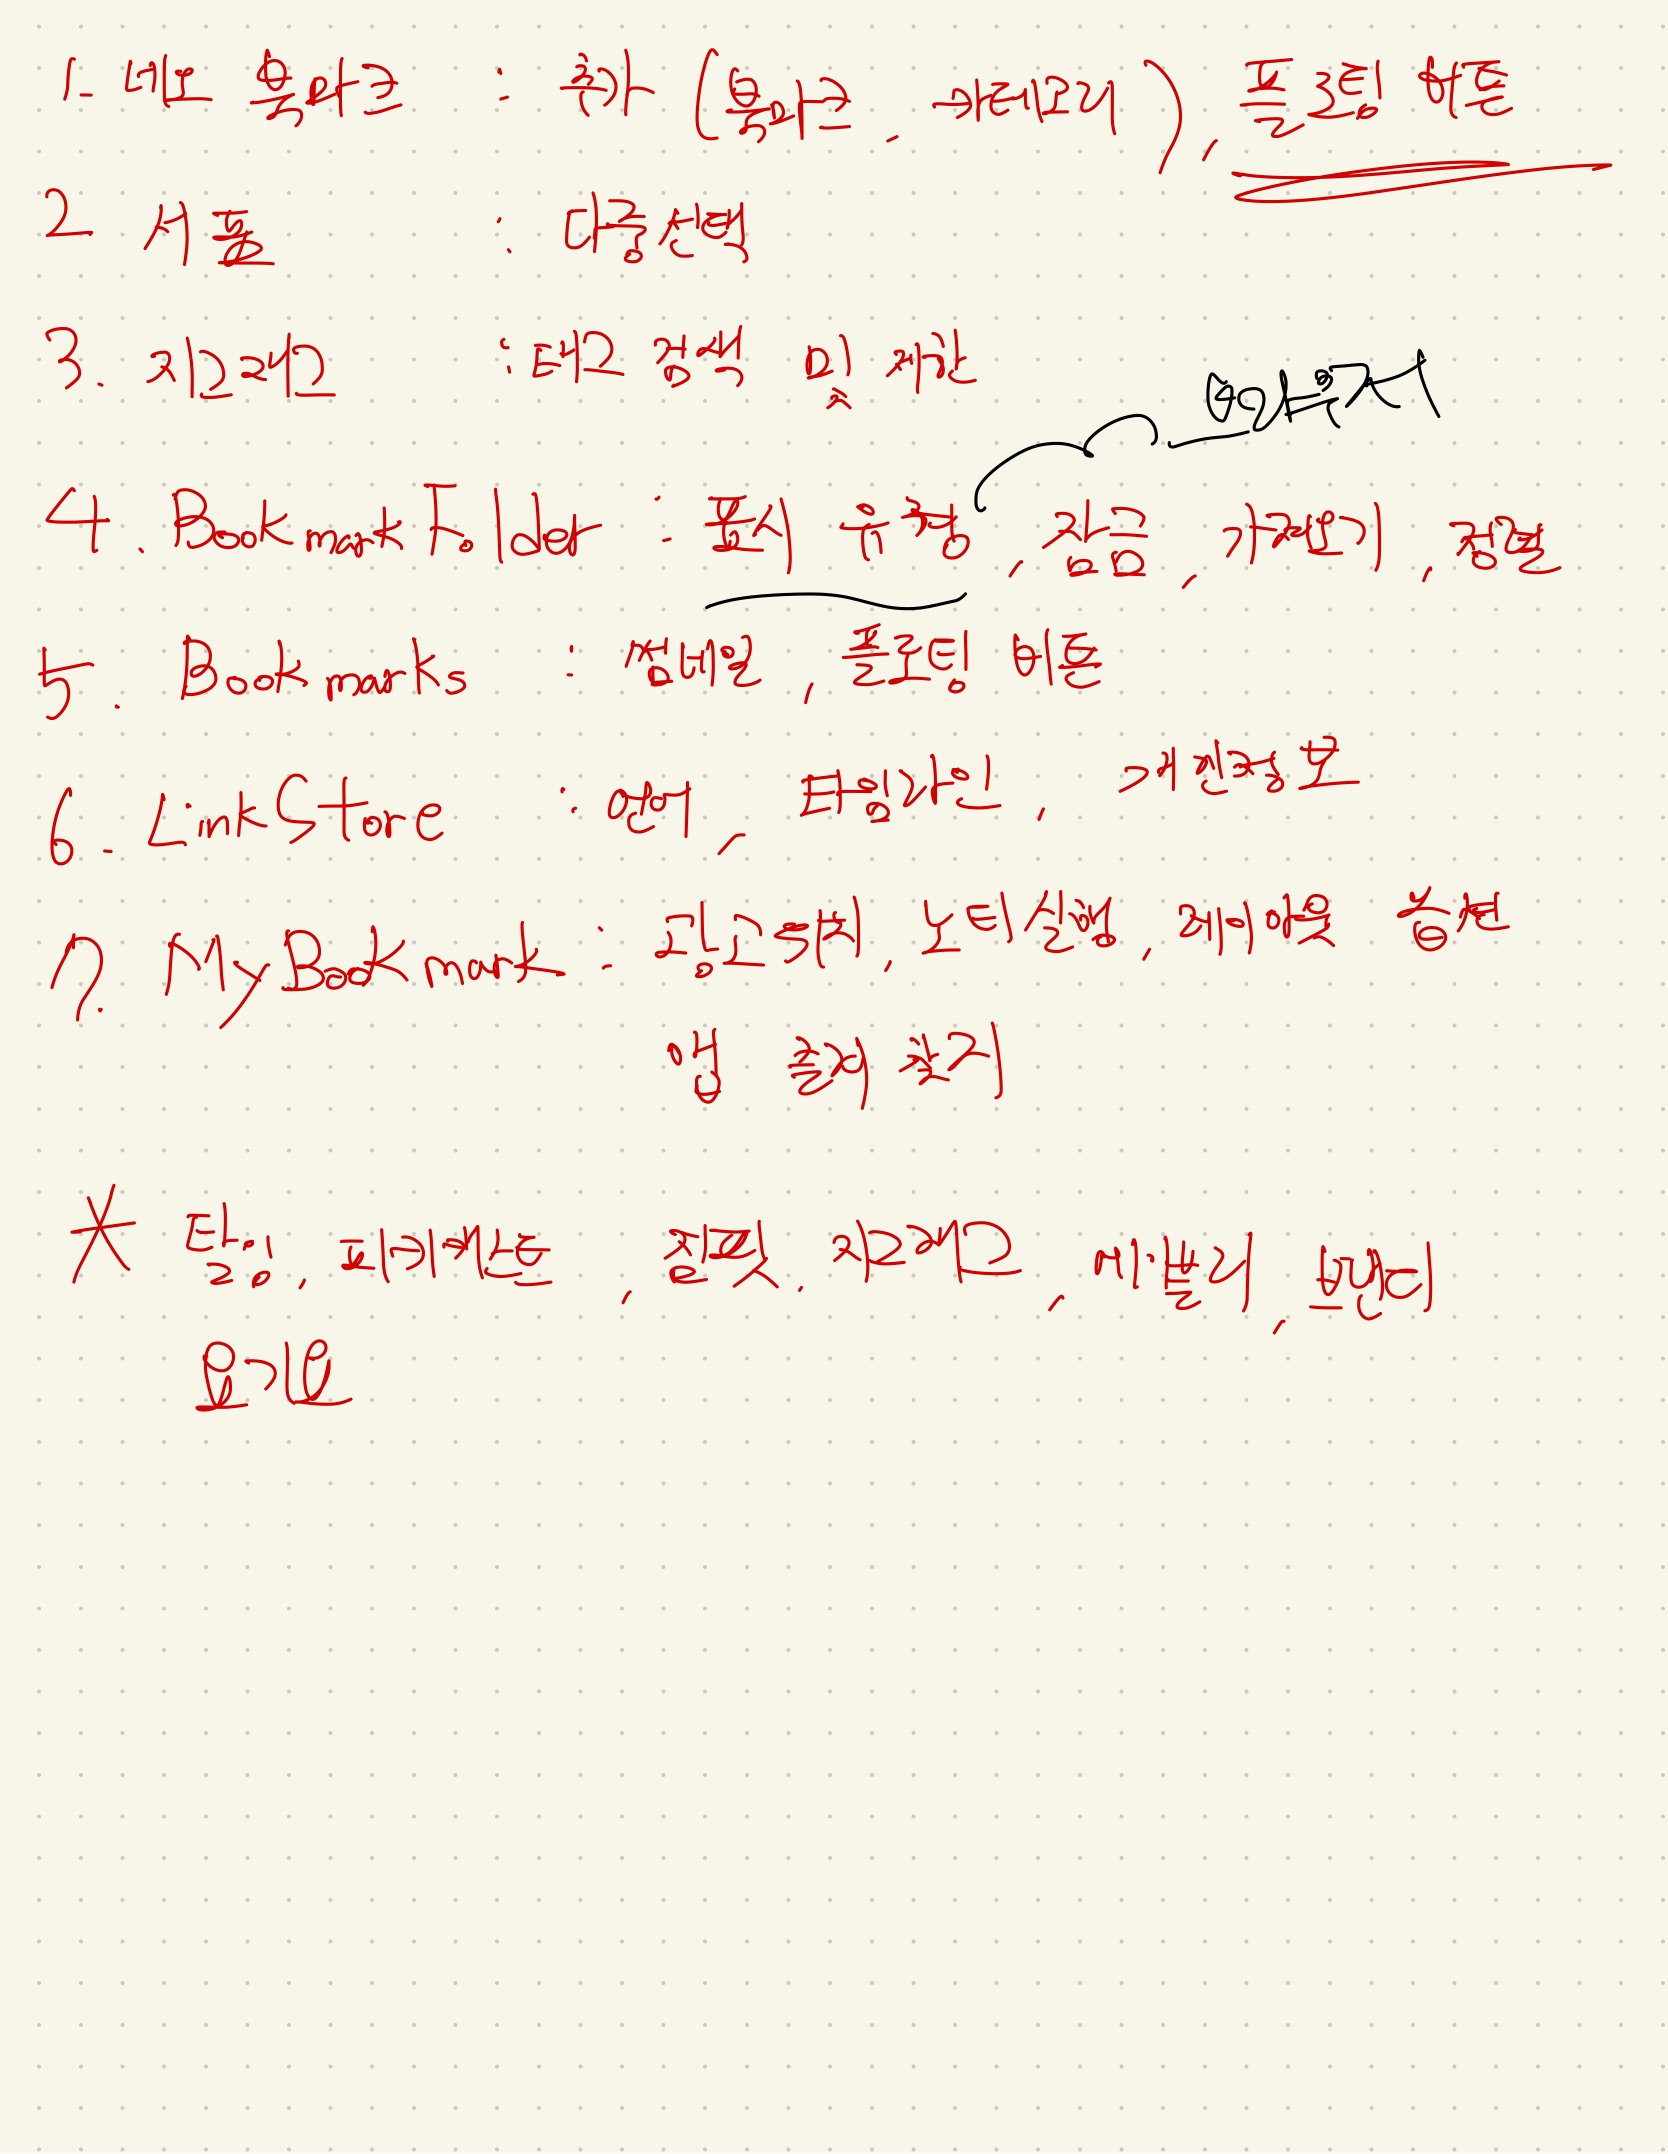 1. 네모 북마크 : 추가 (북마크, 카테고리), 플로팅 버튼
2 서풀 : 다중선택
3. 지그재그 : 태그 검색 및 제한
4. Bookmark Folder : 표시 유형, 잠금, 가져오기, 정렬
5. Bookmarks : 썸네일, 플로팅 버튼
6. LinkStore : 언어, 타임라인, 개인정보
7. MyBookmark : 광고위치, 노티실행, 레이아웃 습견
앱 출처 찾기
* 탈잉, 피키캐스트, 질픽, 지그재그, 에블리, 브랜디
요기요